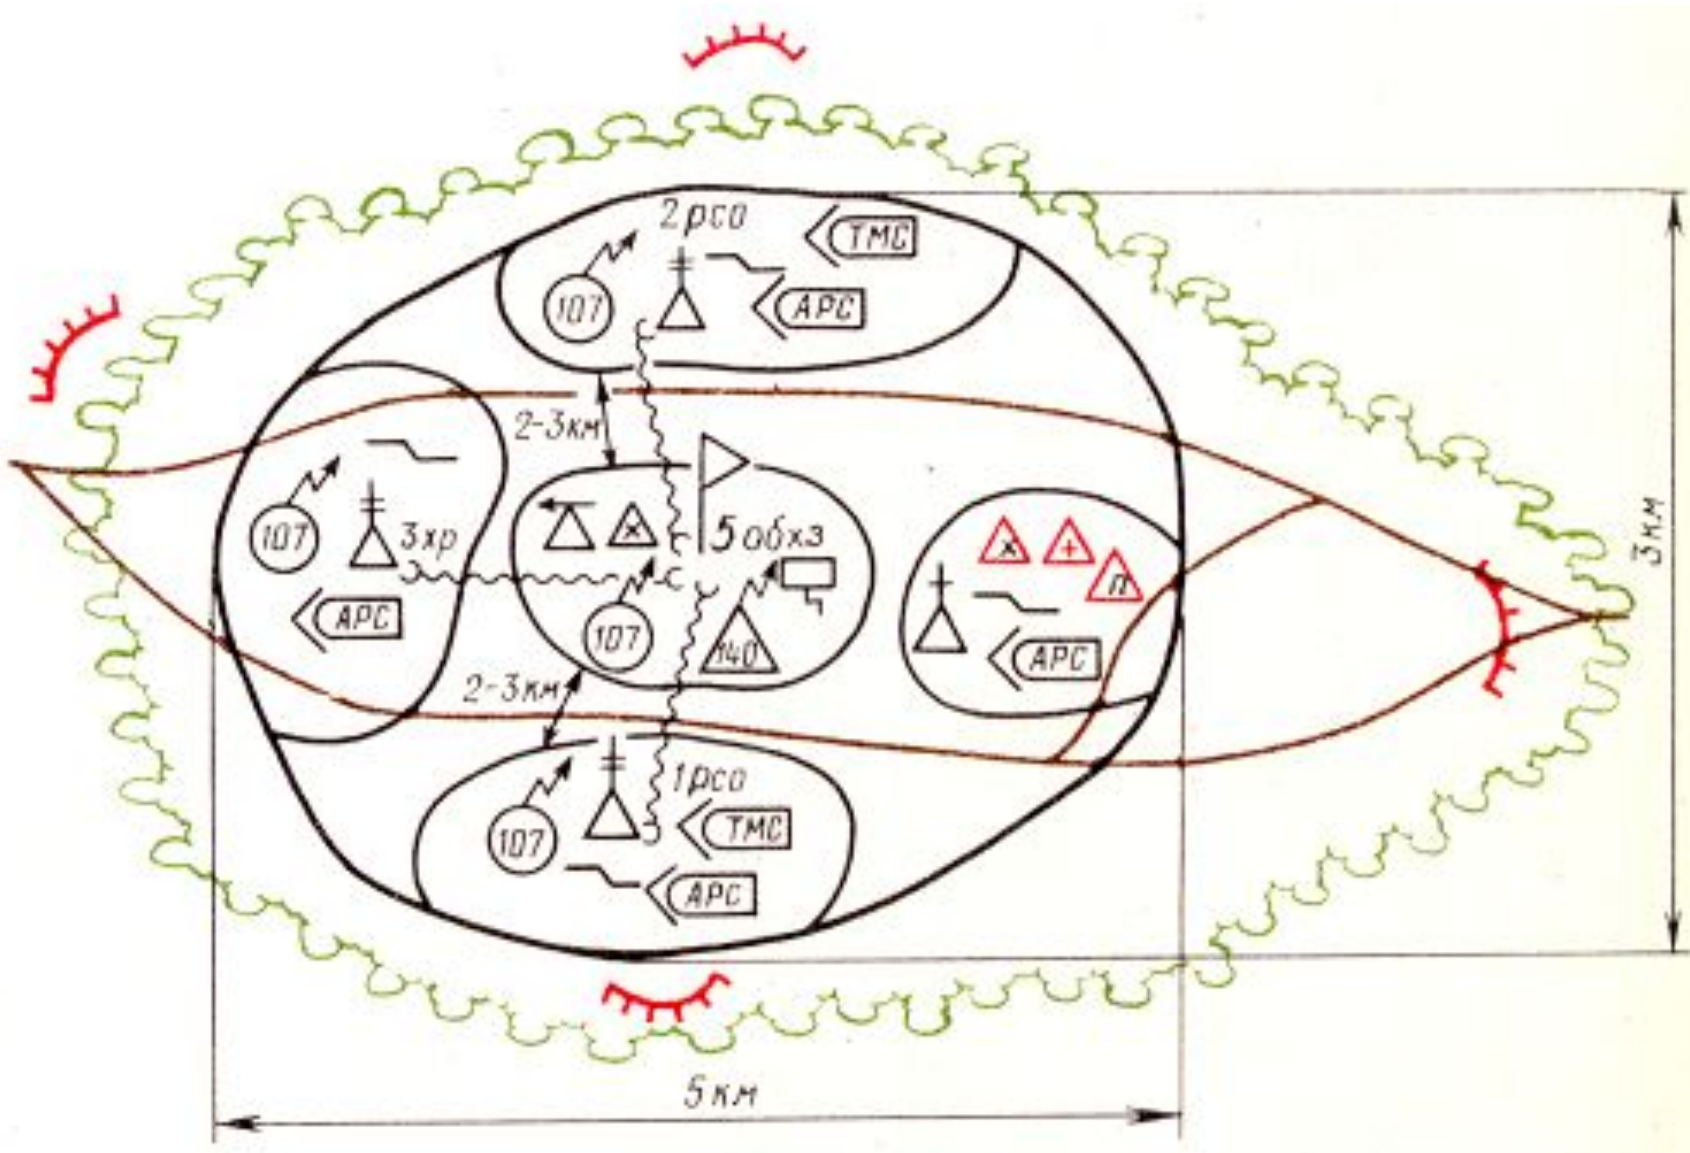 2 рсо
ТМС
107
АРС
2-3км
107
3хр
АРС
5 обхз
107
140
п
АРС
3км
2-3км
1рсо
107
ТМС
АРС
5км